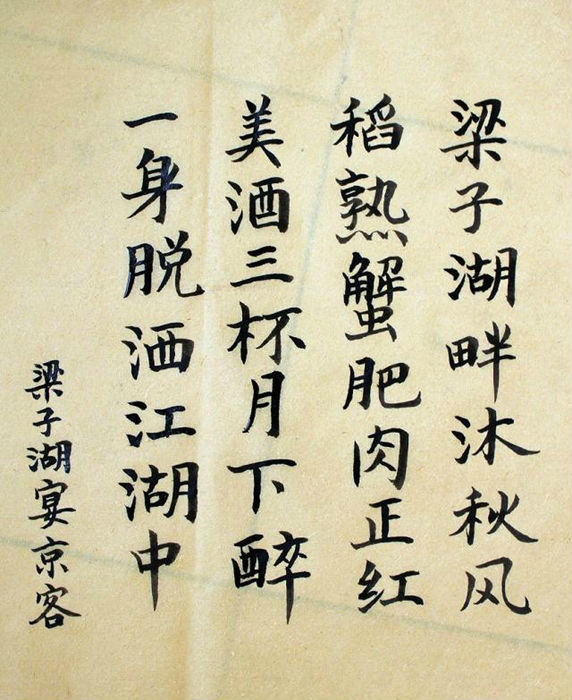 梁子湖畔沐秋风
稻熟蟹肥肉正红
美酒三杯月下醉
一身脱洒江湖中
梁子湖宴京客